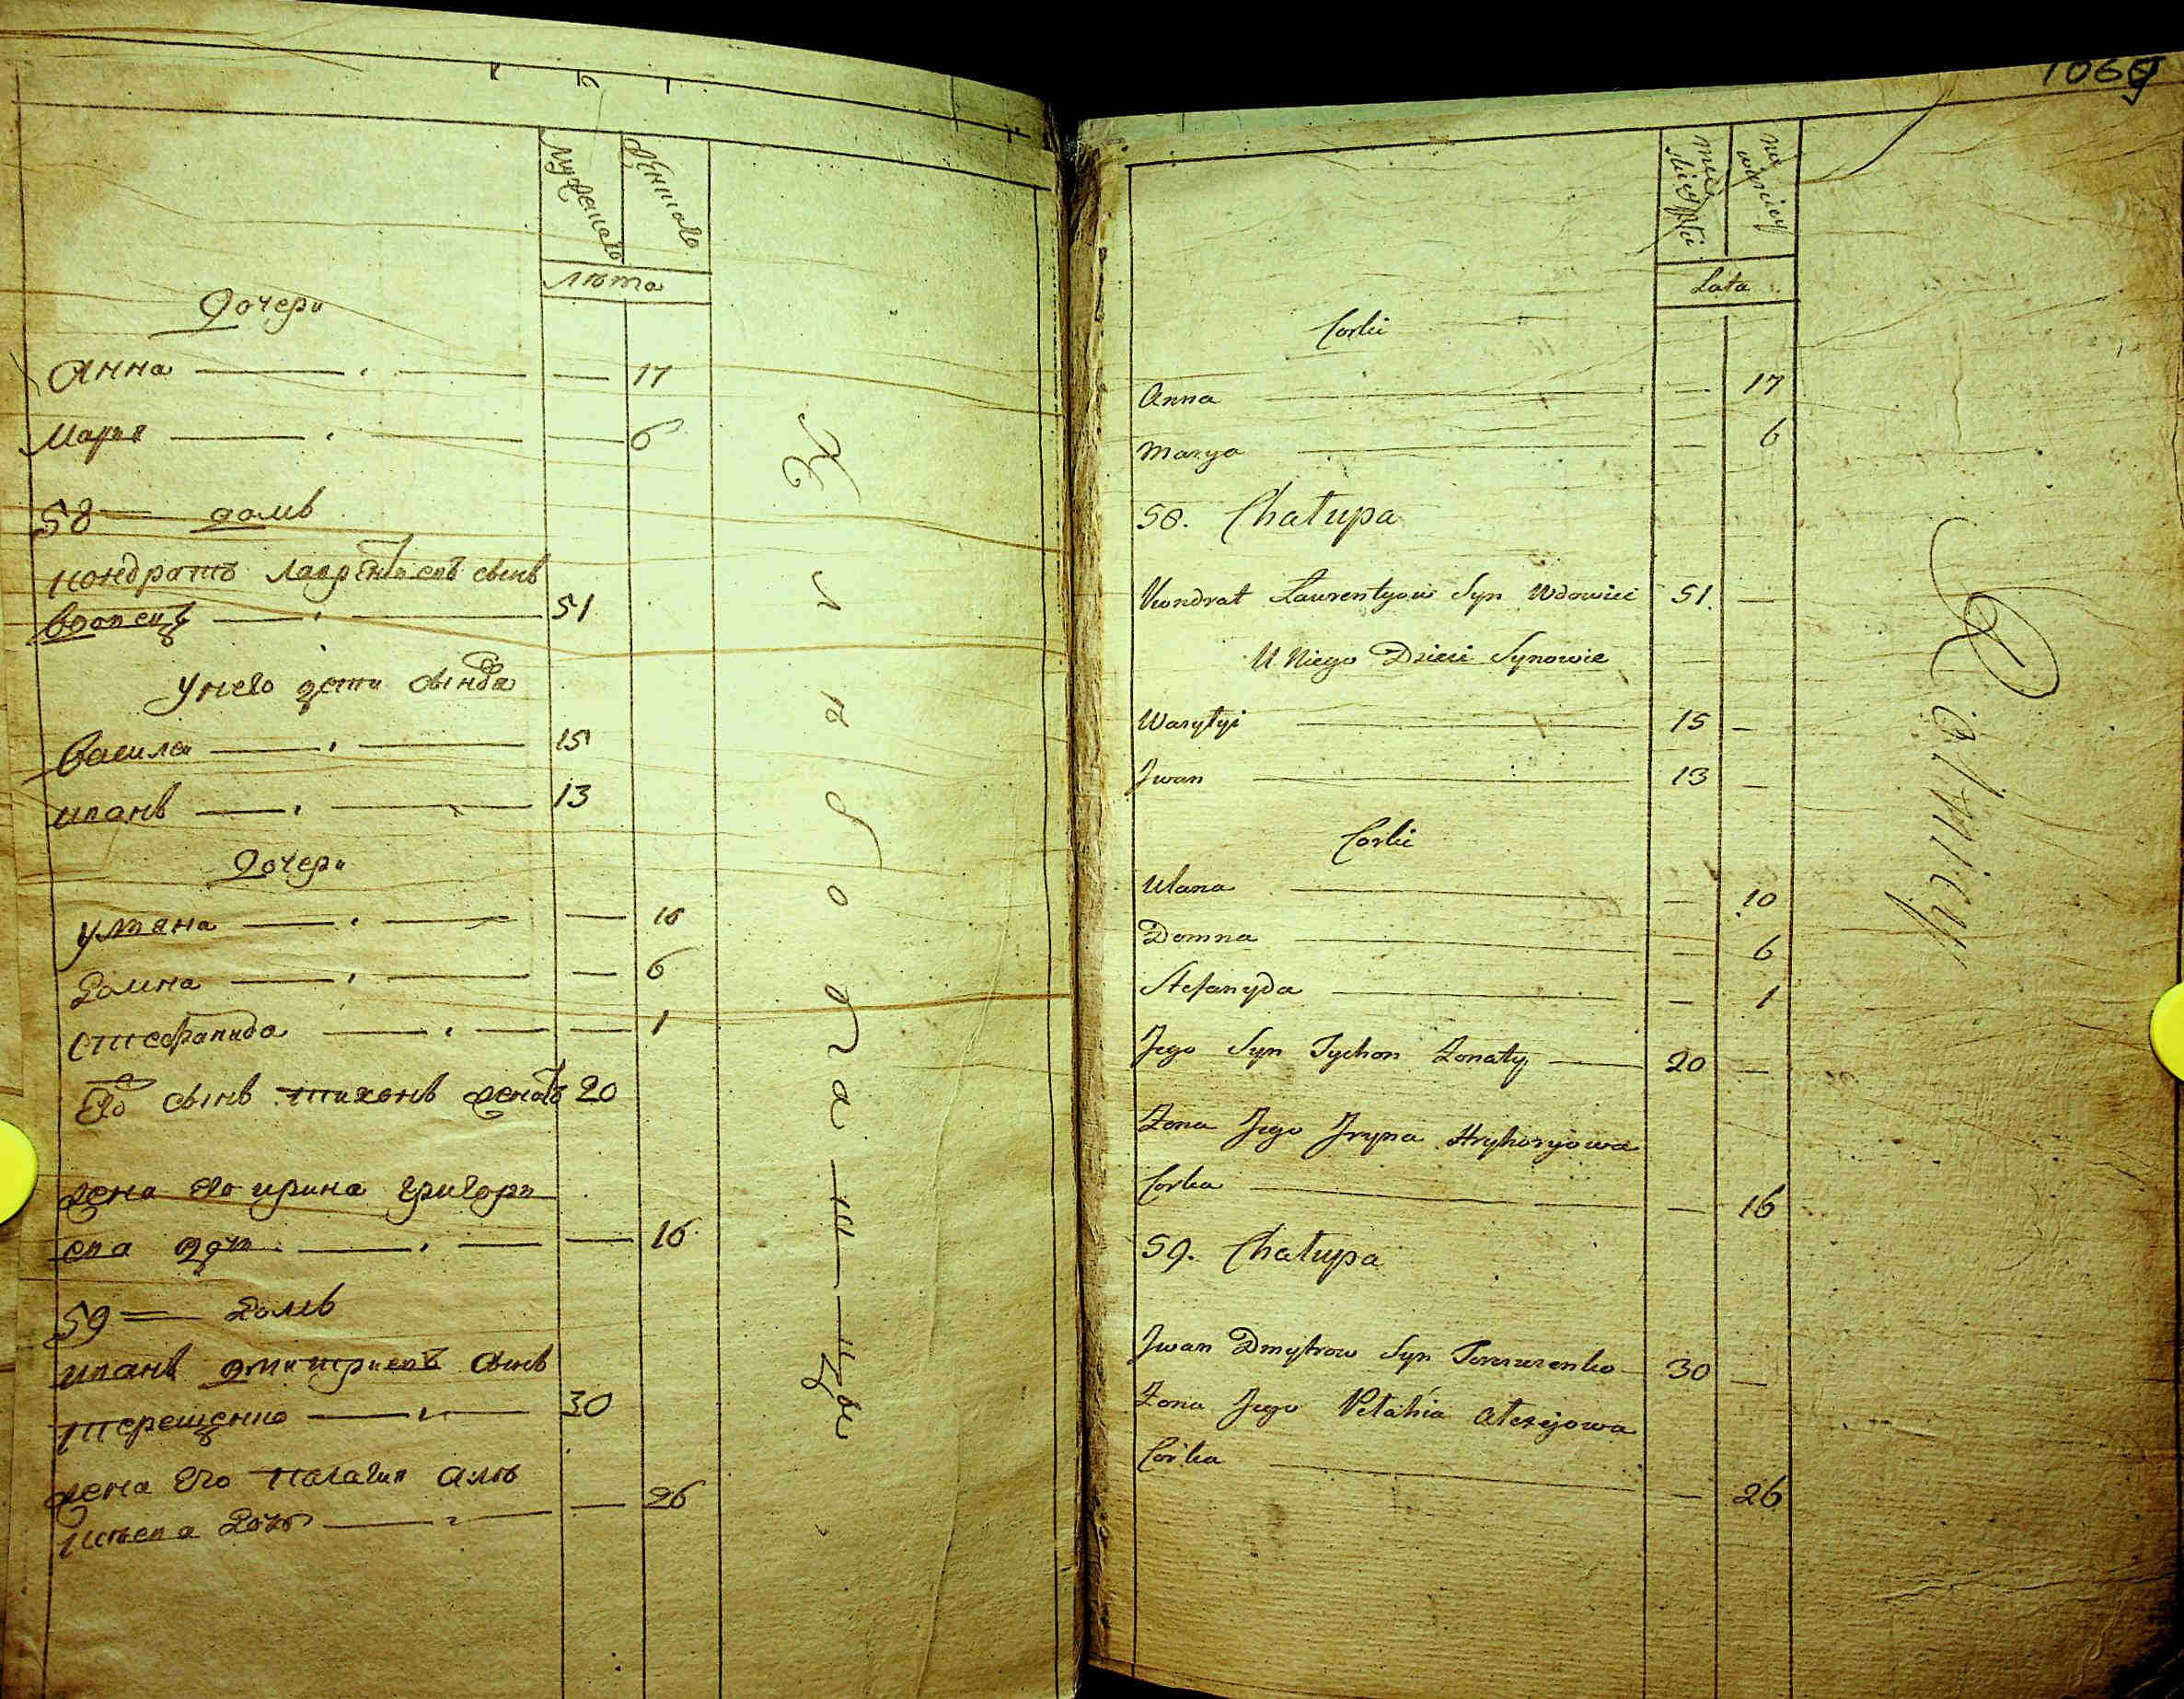 мужеска
женска
лѣта
Дочери
Анна — 17
Мария — 6
58 домъ
Кондратъ Лаврентиевъ сынъ
вдовецъ 51
У него дети сынова
Василей 15
Иванъ 13
Дочери
Уляна — 10
Домна — 6
Стефанида — 1
Его сынъ Тихонъ женатъ 20
жена его Ирина Григори
ева дочь — 16
59 Домъ
Иванъ Дмитриевъ сынъ
Терещенко 30
жена его Палагия Алек
дочь — 26
1069
Lata
Corki
Anna — 17
Marya — 6
58. Chałupa
Kondrat Laurentyow Syn Wdowiec 51 —
U Niego Dzieci Synowie
Wasylyi 15 —
Jwan 13 —
Corki
Ulana — 10
Domna — 6
Stefanyda — 1
Jego Syn Tychon Żonaty 20 —
Żona Jego Jryna Hryhoryjowa
Corka — 16
59. Chałupa
Jwan Dmytrow Syn 30 —
Żona Jego Pełahia Alexijowa
Corka — 26
Rolnicy